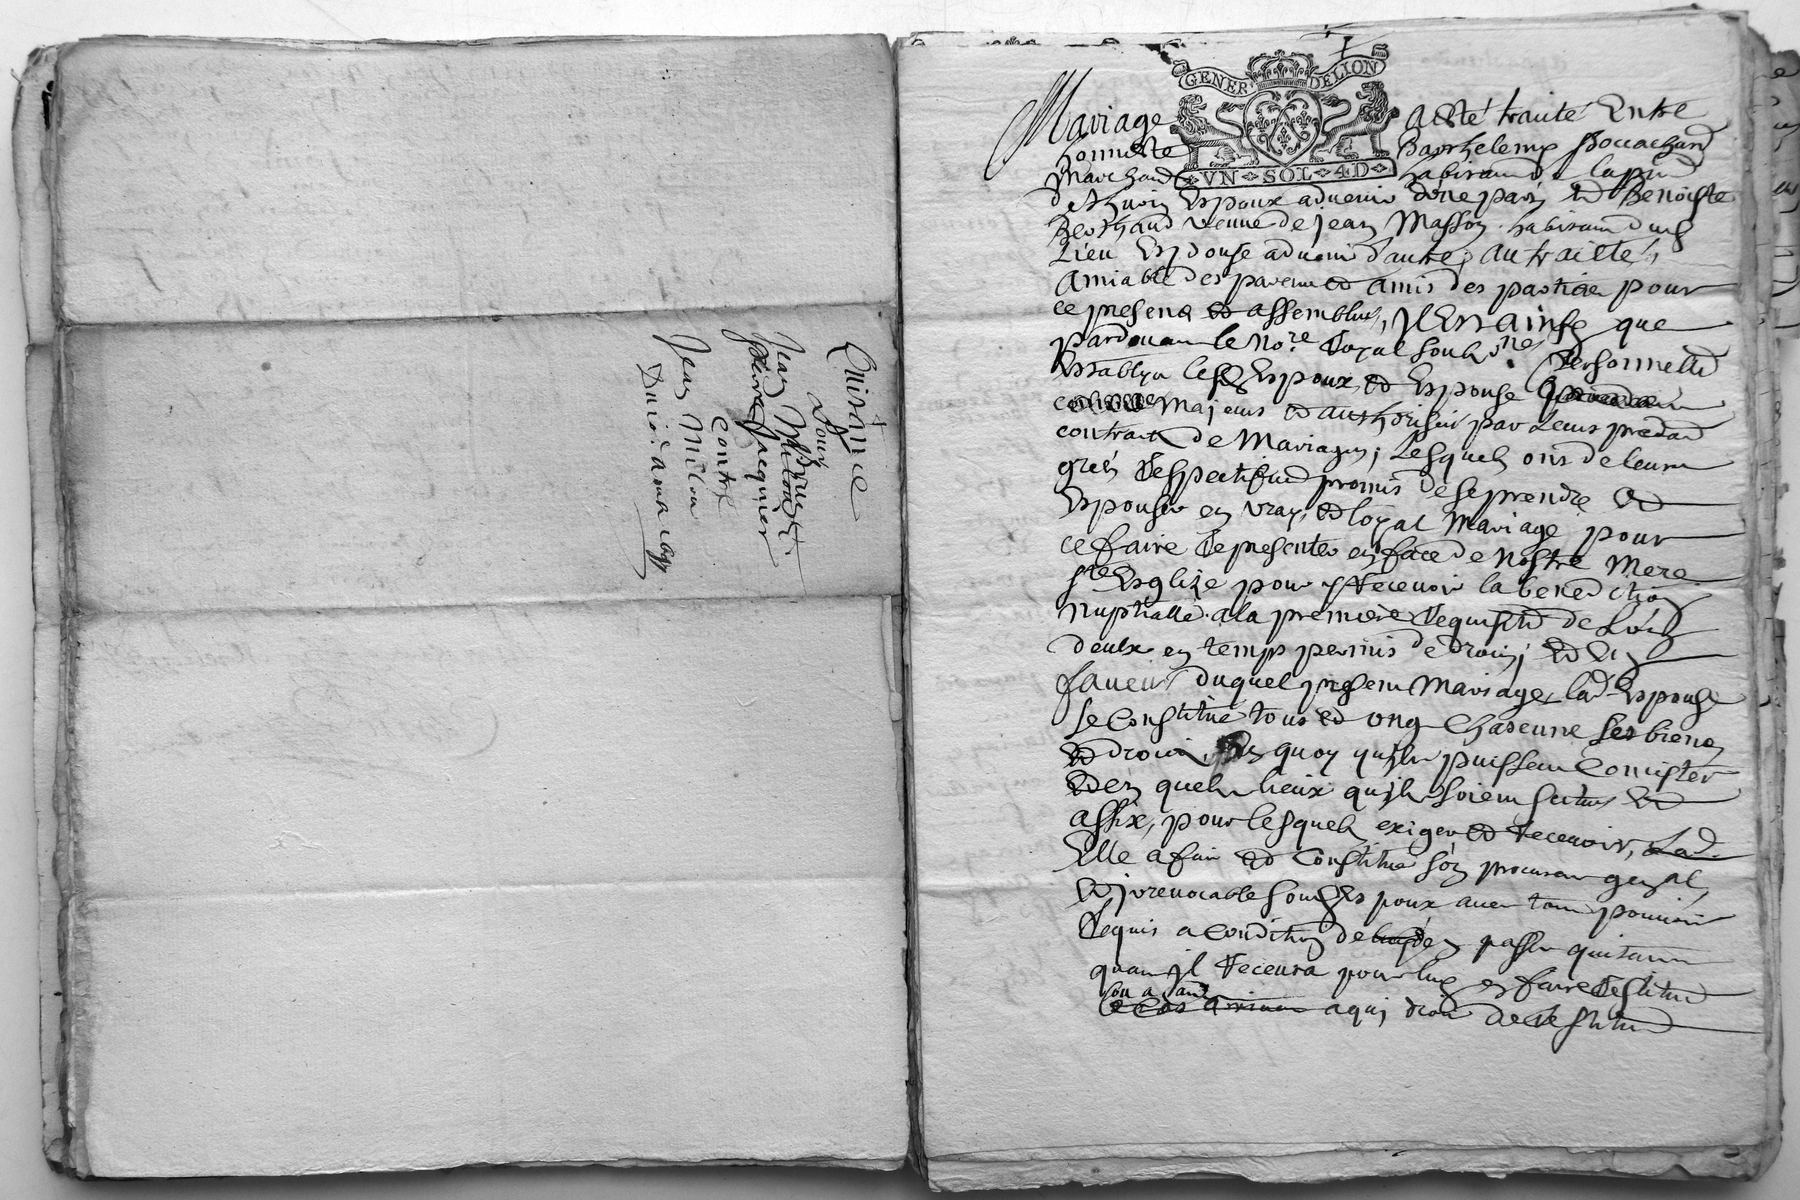 Quittance
pour
Jean Millouz et
pierre Jacquier
contre
Jean Millou
GENER DELION
VN SOL 4D
Mariage a esté traité Entre
honneste Barthelemy Bouachard
Marchand habitant
Espoux advenir d'une part Et Benoiste
Berthaud veuve de Jean Masson habitant dud
Lieu Espouse advenir d'autre, au traitté
Amiable des parens et amis des parties pour
ce presens et assemblés, Il Est ainsy que
pardevant le No.re Royal soub.né personnellem
Establys lesd Espoux, et Espouse
majeurs et authorisés par leurs predad
contract de Mariages, Lesquels ont de leurs
grés respectifs promis de se prendre et
Espouser en vray, et loyal Mariage pour
ce faire se presenter en face de Nostre Mere
Ste Esglize pour y recevoir la benediction
Nuptialle a la premiere requisition de L'un
deulx en temps permis de droit; Et En
faveur duquel present Mariage, lad Espouse
se Constitue tous et ung chascung ses biens
et droits, En quoy qu'ils puissent Consister
Et En quels lieux qu'ils soient scitués et
assix, pour lesquels exiger et recevoir, Lad.
Elle a fait et Constitué son procureur genal,
et irrevocable son Espoux avec tout pouvoir
requis a Condition de passer quittance
quant Il recevra pour luy en faire restitu
a qui droit de restitu